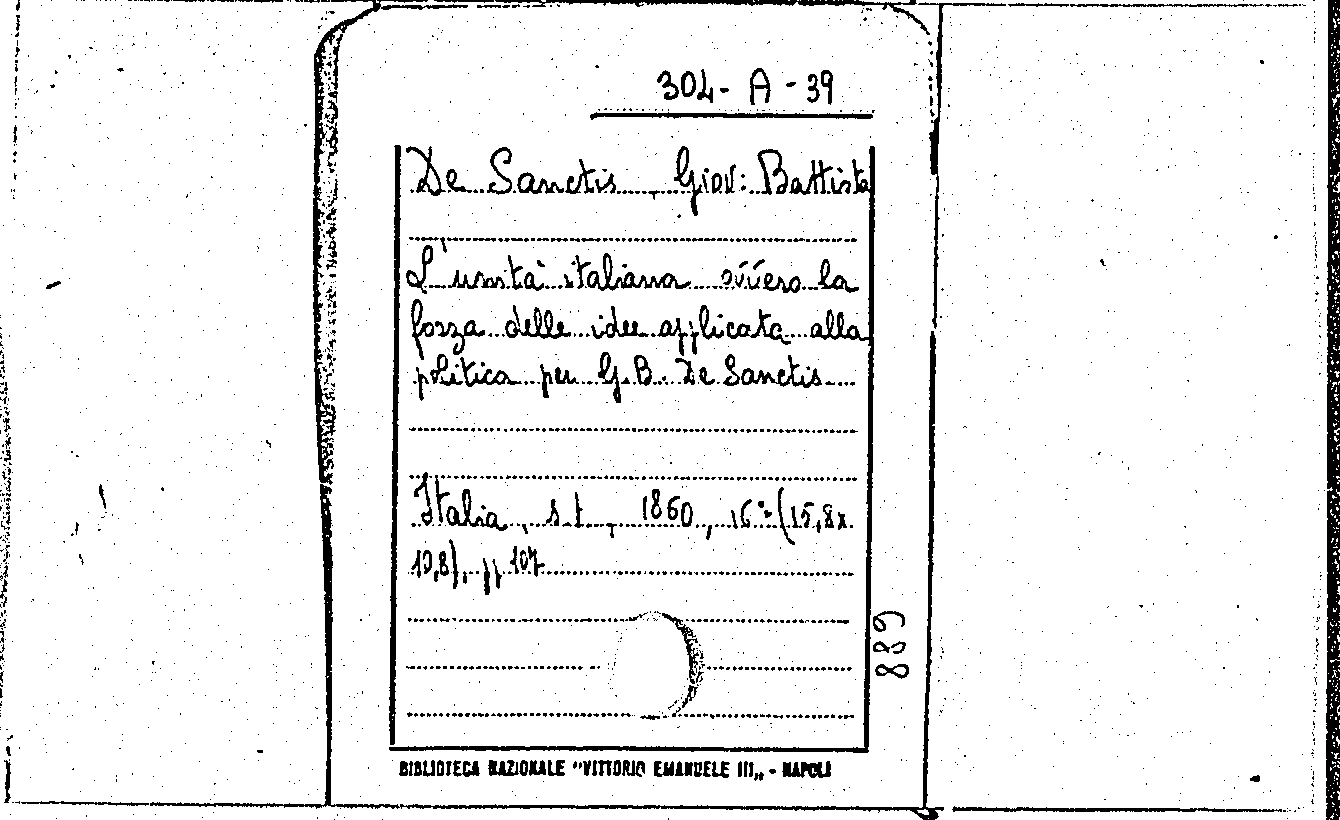 304 - A - 39
De Sanctis, Giov: Battista
L'unità italiana ovvero la
forza delle idee applicata alla
politica per G.B. De Sanctis
Italia, s.t., 1860, 16° (15,8x
10,8), pp 107
889
BIBLIOTECA NAZIONALE "VITTORIO EMANUELE III„ - NAPOLI